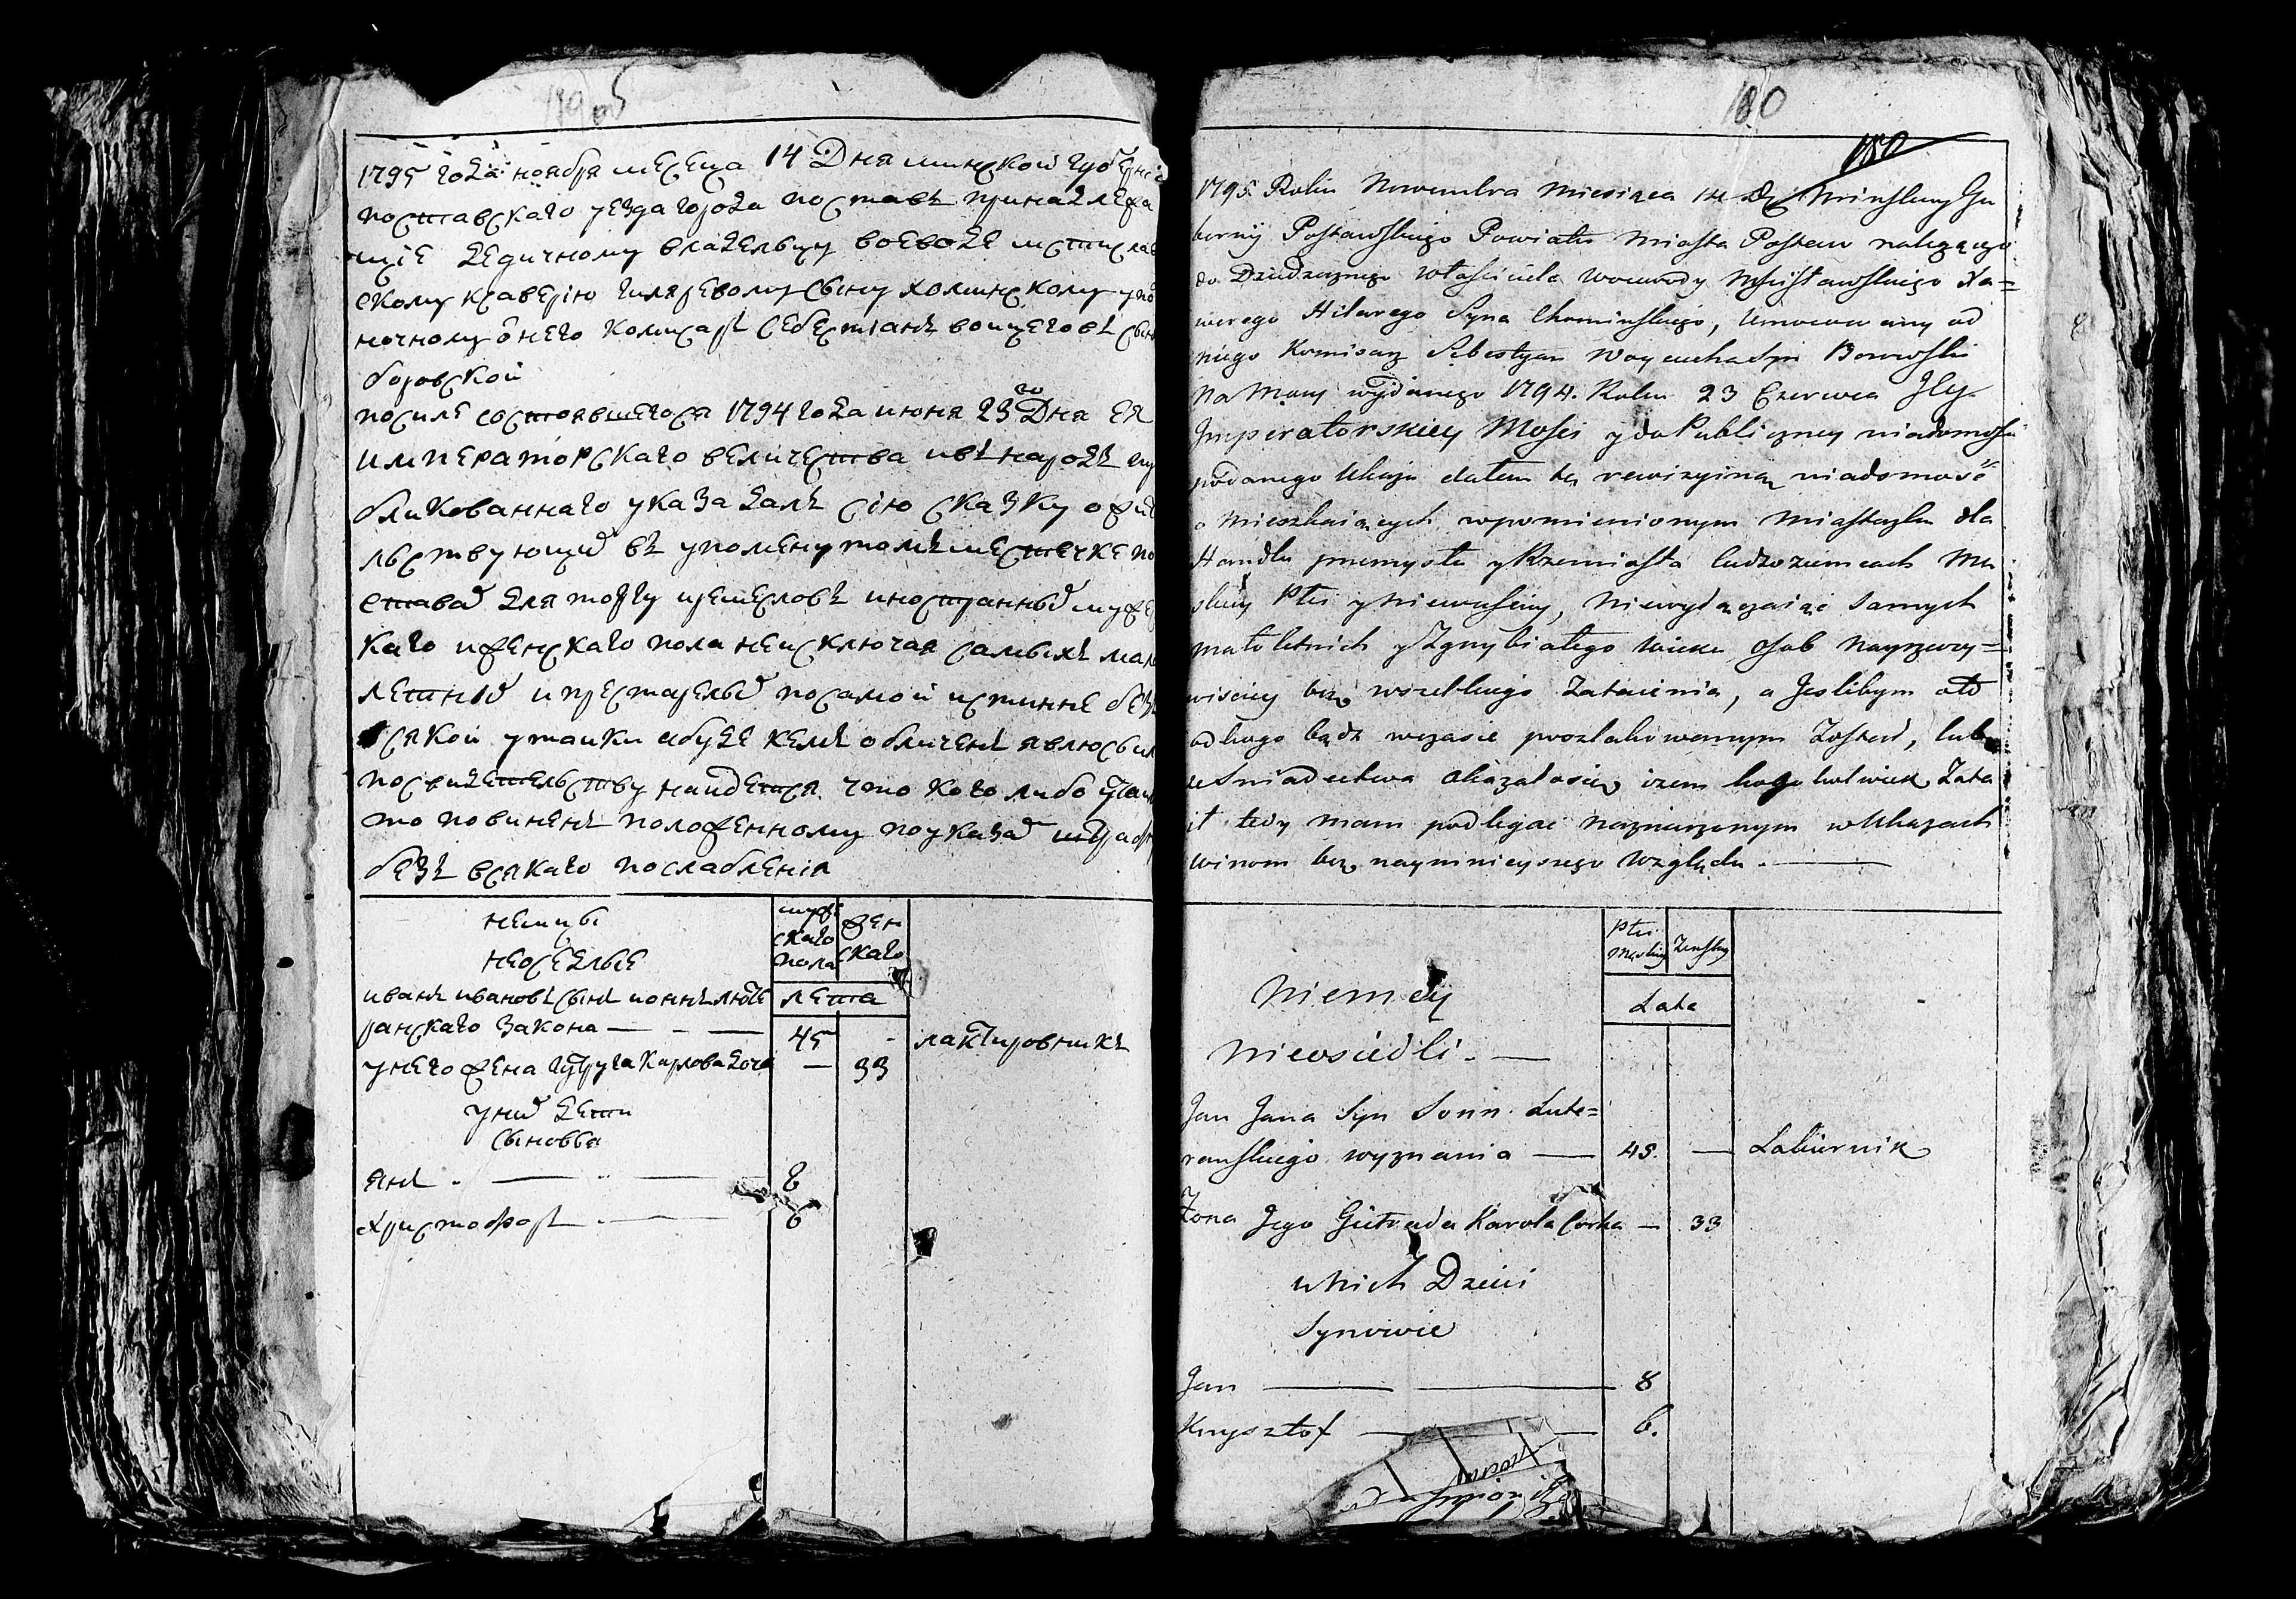 1795 года ноября месеца 14 Дня минской губерніи
поставскаго уезда города поставъ принадлежа
щіе дедичному владельцу воеводе мстислав
скому ксаверію гиляревому сыну хоминскому упо
ночному ѿ него комисаръ себестіанъ войцеговъ сынъ
боровской
по силе состоявшегося 1794 года июня 23го Дня ея
императорскаго величества и въ народъ пу
бликованнаго указа далъ сію сказку о жи
льствующих въ упоменутомъ местечке по
ставах для торгу иремесловъ иностранных мужес
каго иженскаго пола не исключая самыхъ мало
летних и престарелых по самой истинне безъ
всякой утайки абуде кемъ обличенъ явлюсь или
по свидетельству найдется что кого либо утаил
то повиненъ положенному по указах штрафу
безъ всякаго послабленія
немцы
неоседлые
мужескаго пола
женскаго
лета
иванъ ивановъ сынъ ионнъ люте
ранскаго закона — - — 45 - лактировникъ
у него жена гутруга Карлова дочь — 33
у них дети
сыновья
янъ . — .. — 8
христофоръ . — 6
180
180
1795. Roku Nowembra miesiąca 14 Minskiey Gu
bernij Postawskiego Powiatu Miasta Postaw należącego
do Dziedzicznego właściciela wojewody Mscisławskiego Xa=
werego Hilarego Syna Chominskiego, Umocowany od
niego Komisarz Sebestyan Woyciecha Syn Borowski
Na Mocy wydanego 1794. Roku 23 Czerwca Jey
Imperatorskiey Mości y do Publiczney wiadomości
podanego Ukazu dałem tę rewizyiną wiadomość
o Mieszkaiących wpomienionym Miasteczku dla
Handlu przemysłu y Rzemiosła Cudzoziemcach Mę
skiey Płci y Niewieściey, Niewyłączaiąc samych
małoletnich y Zgrzybiałego wieku Osob Nayrzeczy=
wisciey bez wszelkiego Zataienia, a Jeslibym od
od kogo bądz wczasie poszlakowanym Zostać, lub
ze Swiadectwa Okazałosię iżem kogo kolwiek Zata
ił tedy mam podlegać naznaczonym w Ukazach
winom bez naymnieyszego Względu . —
Płci
Męskiey Zenskiey
Lata
Niemcy
Nieosiedli . —
Jan Jana Syn Jonn Lute=
ranskiego wyznania — 45. — Lakiernik
Zona Jego Gietruda Karola Corka — 33
u Nich Dzieci
Synowie
Jan — — 8
Krysztof — — 6.